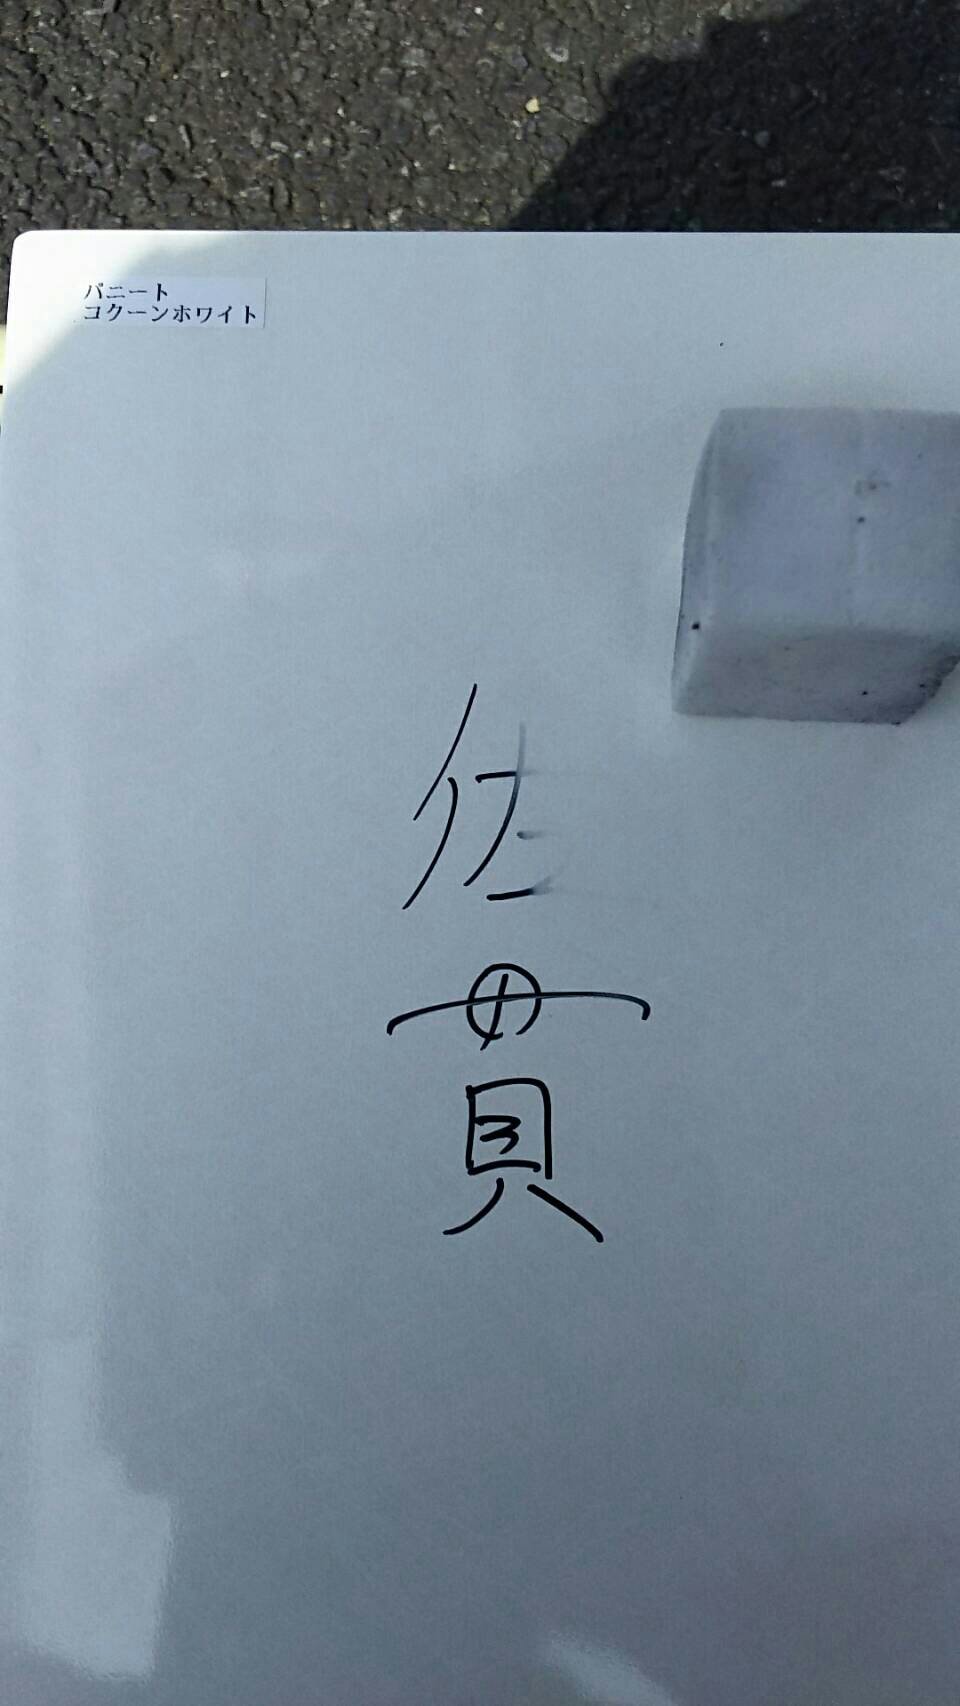 パニート
コクーンホワイト
佐
貫